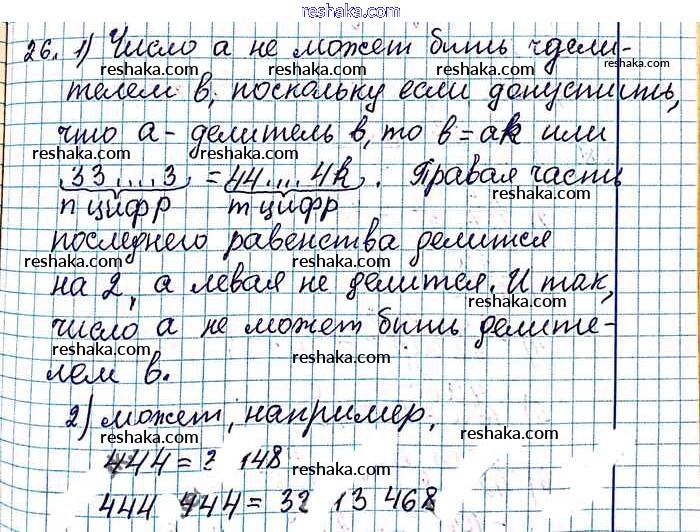 reshaka.com
26. 1) Число а не может быть чдели-
reshaka.com reshaka.com
телем в, поскольку если допустить,
reshaka.com reshaka.com
что а - делитель в, то в = ак или
reshaka.com reshaka.com
33 .... 3 = 44 .... 4k . Правая часть
reshaka.com
n цифр m цифр
reshaka.com
последнего равенства делится
reshaka.com reshaka.com
на 2, а левая не делится. И так,
reshaka.com reshaka.com
число а не может быть делите-
reshaka.com reshaka.com
лем в.
2) может, например,
reshaka.com reshaka.com
444 = 2 148
reshaka.com
444 444 = 32 13 468
reshaka.com reshaka.com
reshaka.com